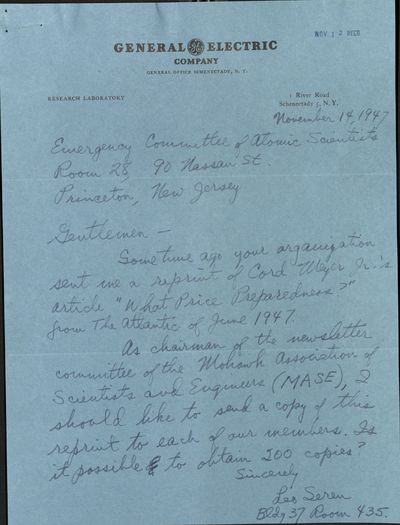 NOV 1 2 REC'D
GENERAL GE ELECTRIC
COMPANY
GENERAL OFFICE SCHENECTADY, N. Y.
RESEARCH LABORATORY
1 River Road
Schenectady 5, N. Y.
November 14, 1947
Emergency Committee of Atomic Scientists
Room 28, 90 Nassau St.
Princeton, New Jersey
Gentlemen —
Sometime ago your organization
sent me a reprint of Cord Meyer Jr.'s
article "What Price Preparedness?"
from The Atlantic of June 1947.
As chairman of the newsletter
committee of the Mohawk Association of
Scientists and Engineers (MASE), I
should like to send a copy of this
reprint to each of our members. Is
it possible to obtain 200 copies?
Sincerely
Leo Seren
Bldg 37 Room 435.